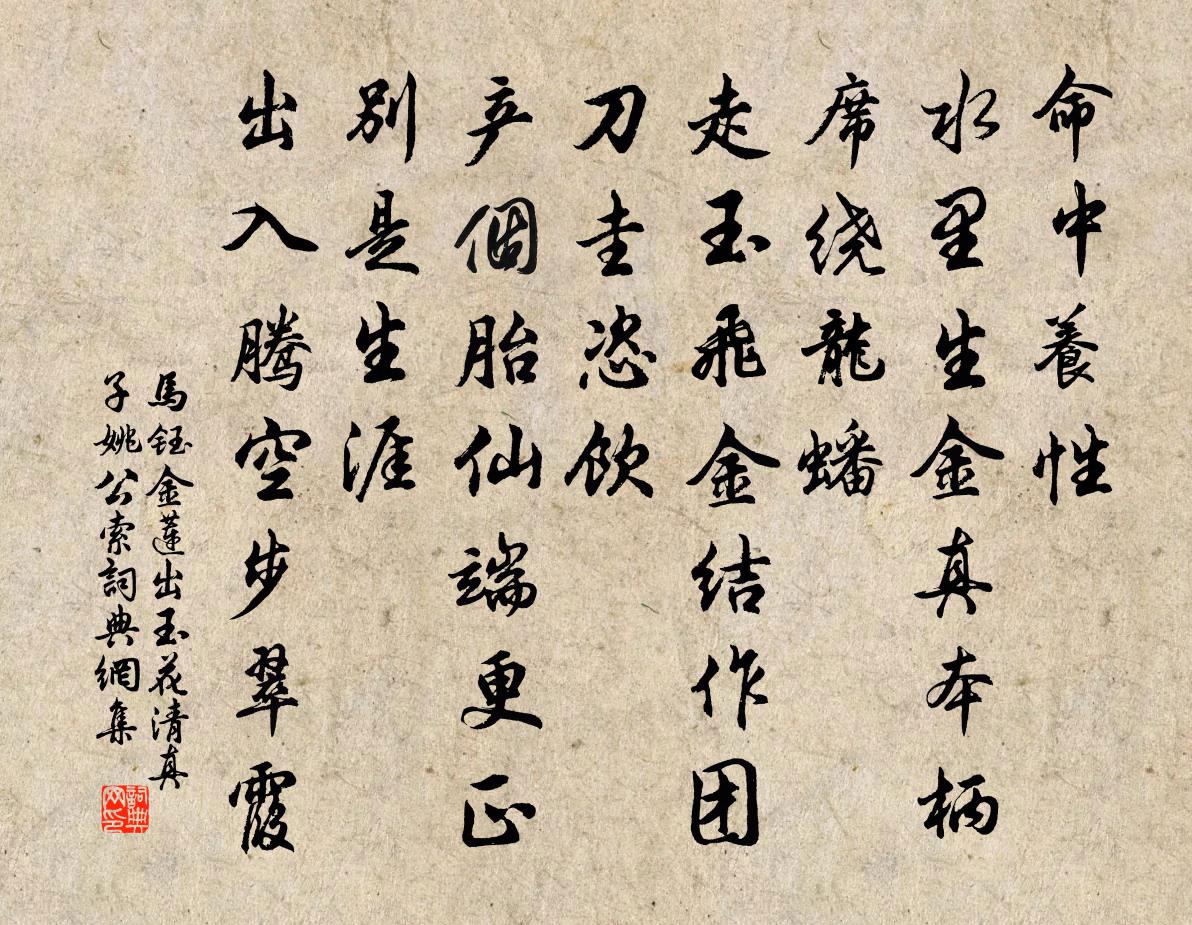 命中養性
水里生金真本柄
席绕龍蟠
走玉飛金结作团
刀圭恣飲
产個胎仙端更正
别是生涯
出入騰空步翠霞
馬钰金蓮出玉花清真
子姚公索詞典網集
詞典网印